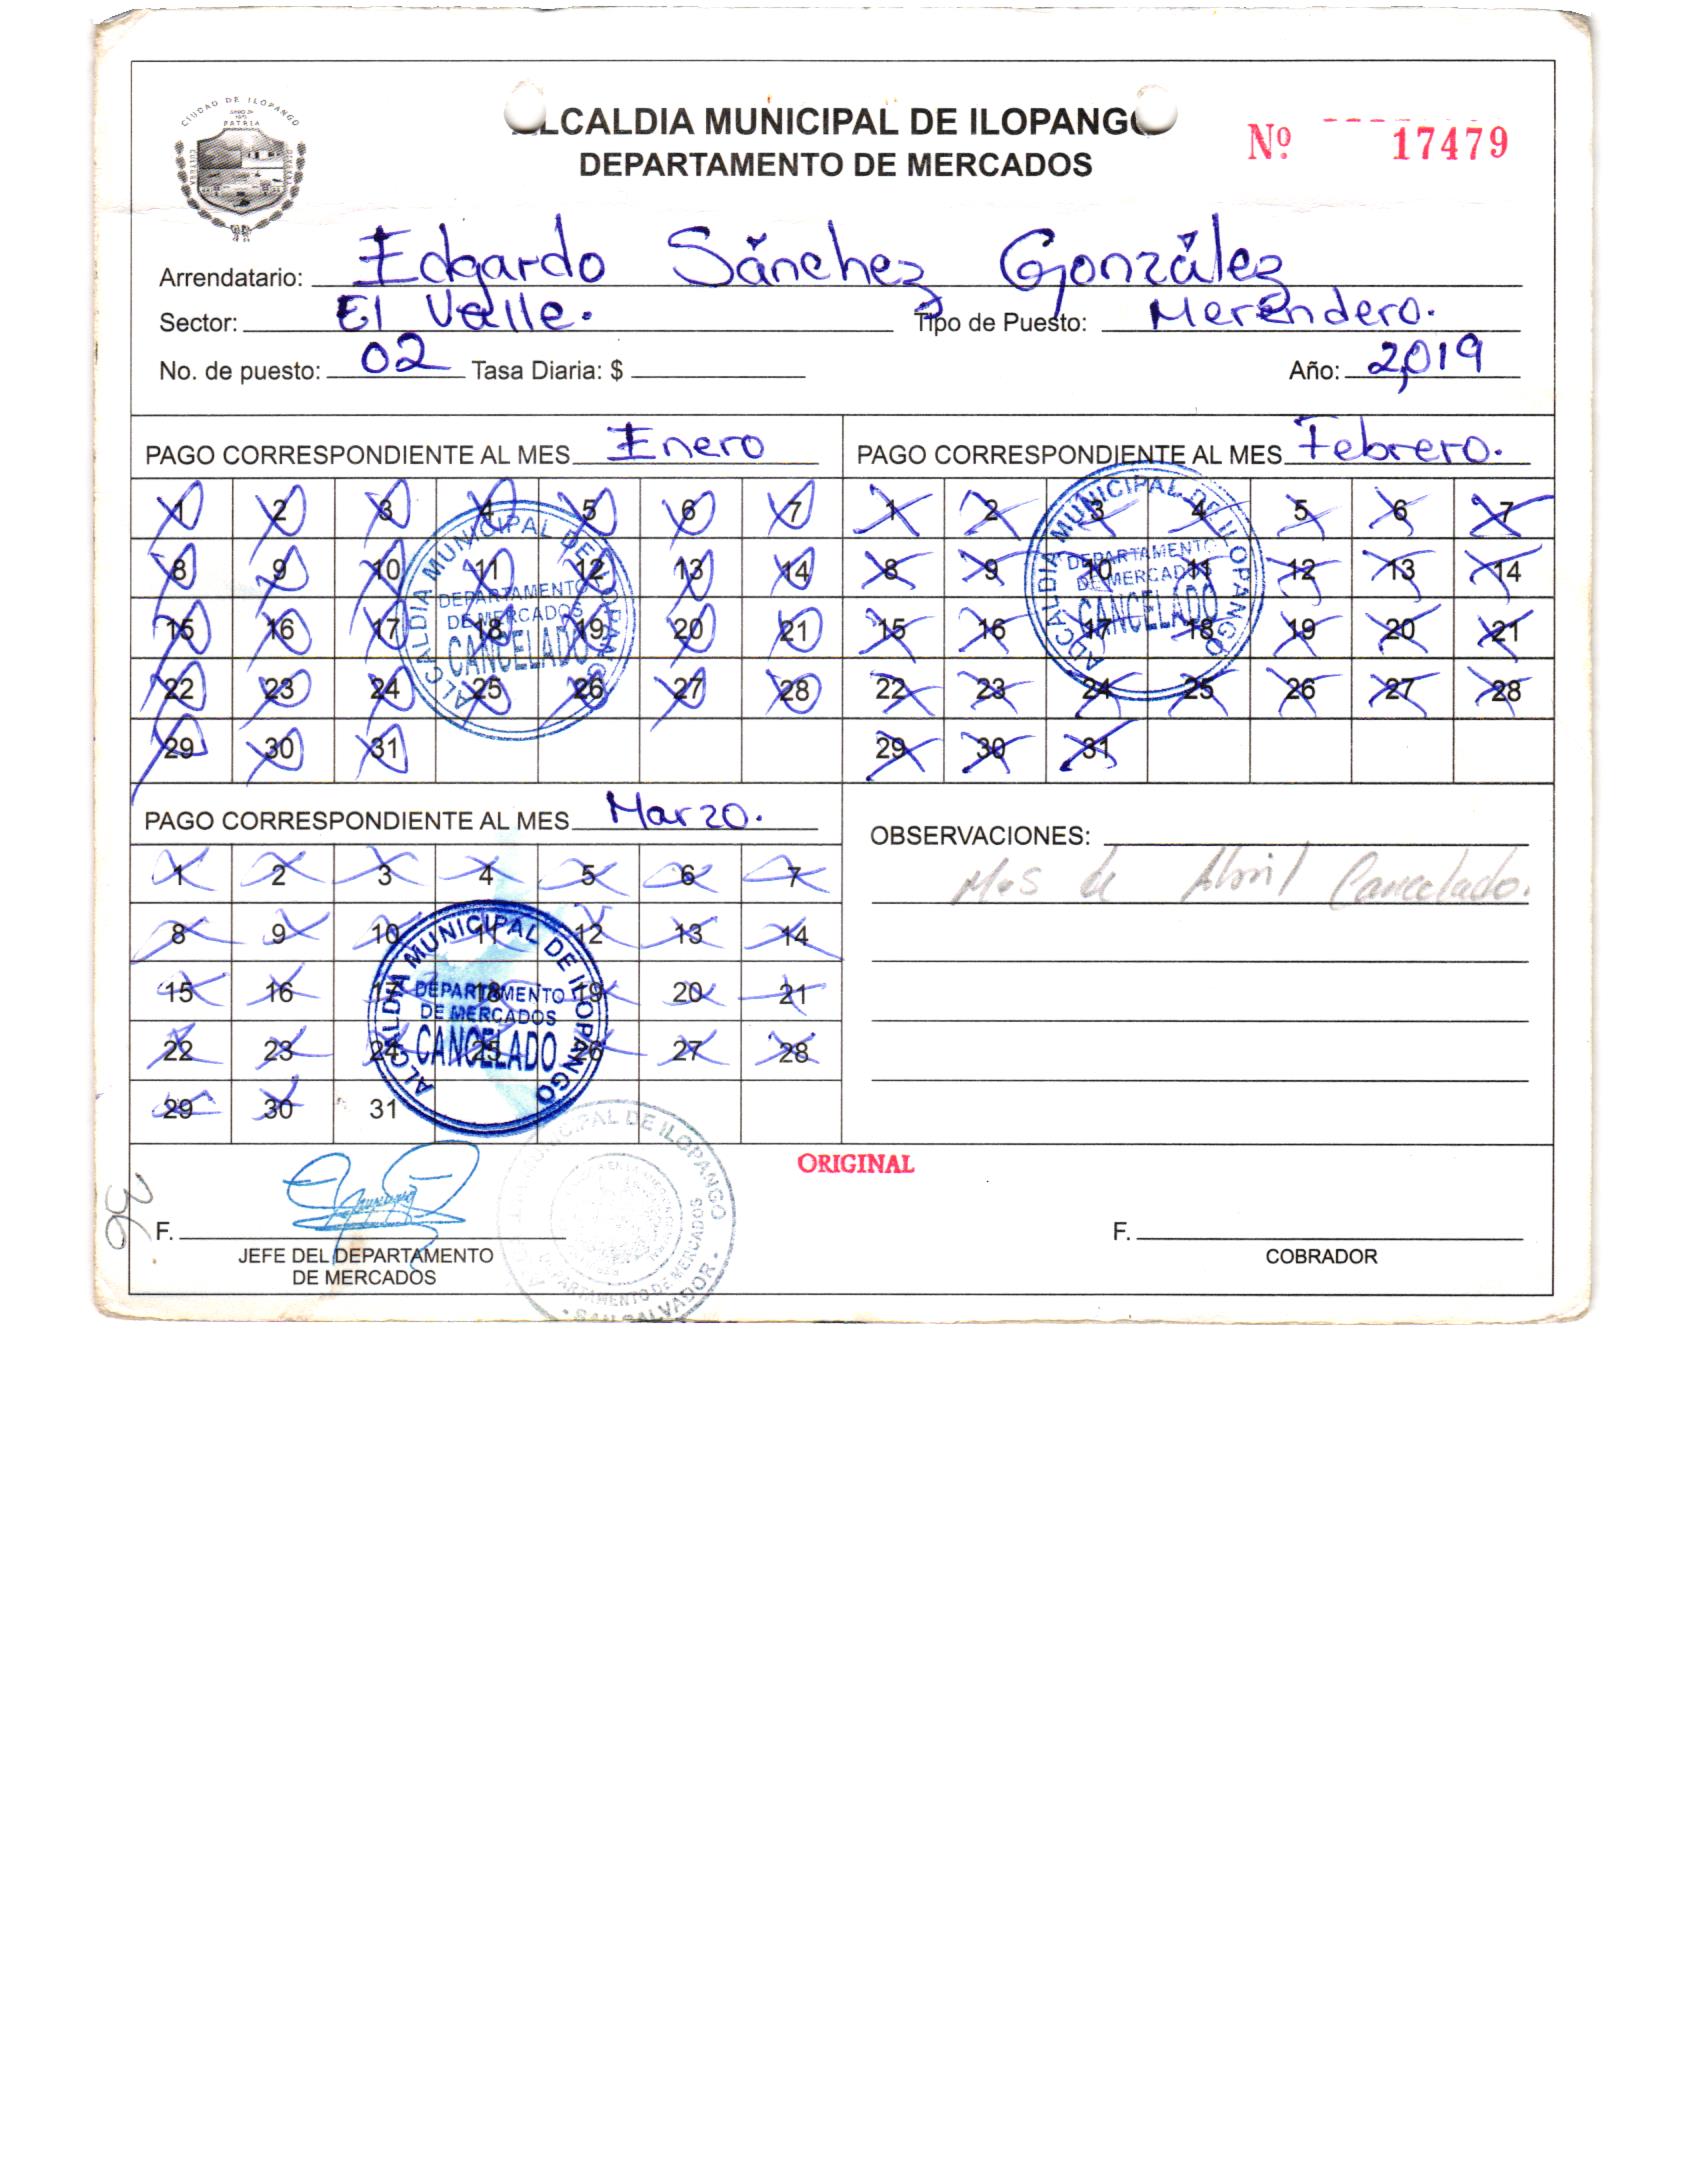 CIUDAD DE ILOPANGO
PATRIA
ALCALDIA MUNICIPAL DE ILOPANGO
DEPARTAMENTO DE MERCADOS
Nº 17479
Arrendatario: Edgardo Sánchez González
Sector: El Valle. Tipo de Puesto: Merendero.
No. de puesto: 02 Tasa Diaria: $ Año: 2,019
PAGO CORRESPONDIENTE AL MES Enero
1 2 3 4 5 6 7
8 9 10 11 12 13 14
15 16 17 18 19 20 21
22 23 24 25 26 27 28
29 30 31
ALCALDIA MUNICIPAL DE ILOPANGO
DEPARTAMENTO
DE MERCADOS
CANCELADO
PAGO CORRESPONDIENTE AL MES Febrero.
1 2 3 4 5 6 7
8 9 10 11 12 13 14
15 16 17 18 19 20 21
22 23 24 25 26 27 28
29 30 31
ALCALDIA MUNICIPAL DE ILOPANGO
DEPARTAMENTO
DE MERCADOS
CANCELADO
PAGO CORRESPONDIENTE AL MES Marzo.
1 2 3 4 5 6 7
8 9 10 11 12 13 14
15 16 17 18 19 20 21
22 23 24 25 26 27 28
29 30 31
ALCALDIA MUNICIPAL DE ILOPANGO
DEPARTAMENTO
DE MERCADOS
CANCELADO
OBSERVACIONES:
Mes de Abril Cancelado.
ORIGINAL
F.
JEFE DEL DEPARTAMENTO
DE MERCADOS
MUNICIPAL DE ILOPANGO
DEPARTAMENTO DE MERCADOS
SAN SALVADOR
F.
COBRADOR